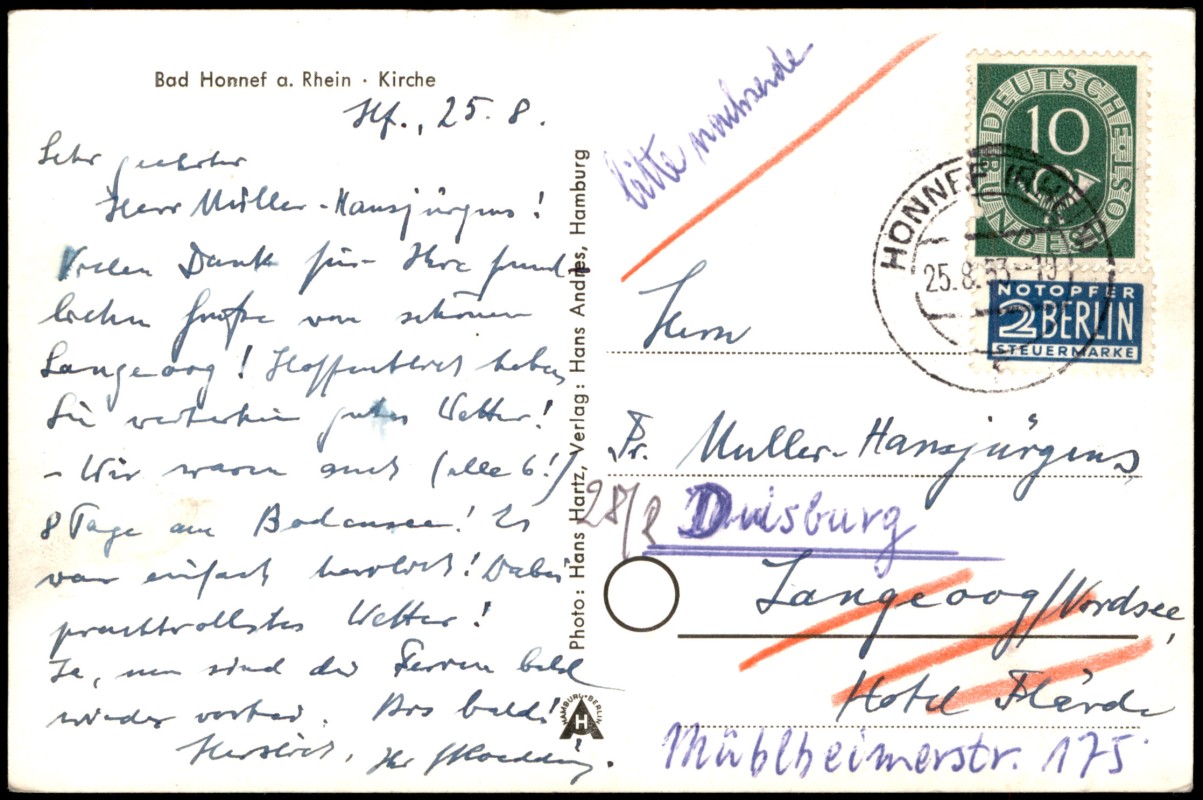 Bad Honnef a. Rhein · Kirche
Hf., 25. 8.
Sehr geehrter
Herr Müller-Hansjürgens!
Vielen Dank für Ihre freund-
lichen Grüße vom schönen
Langeoog! Hoffentlich haben
Sie weiterhin gutes Wetter!
– Wir waren auch (alle 6!)
8 Tage am Bodensee! Es
war einfach herrlich! Dabei
prachtvollstes Wetter!
Ja, nun sind die Ferien bald
wieder vorbei. Bis bald!
Herzlich, Ihr
Photo: Hans Hartz, Verlag: Hans Andres, Hamburg
HAMBURG·BERLIN
H
bitte nachsende
DEUTSCHE BUNDESPOST
10
HONNEF (RHEIN)
25.8.53-19
NOTOPFER
2 BERLIN
STEUERMARKE
Herrn
Fr. Muller-Hansjürgens
28/8 Duisburg
Langeoog/Nordsee,
Hotel
Mühlheimerstr. 175